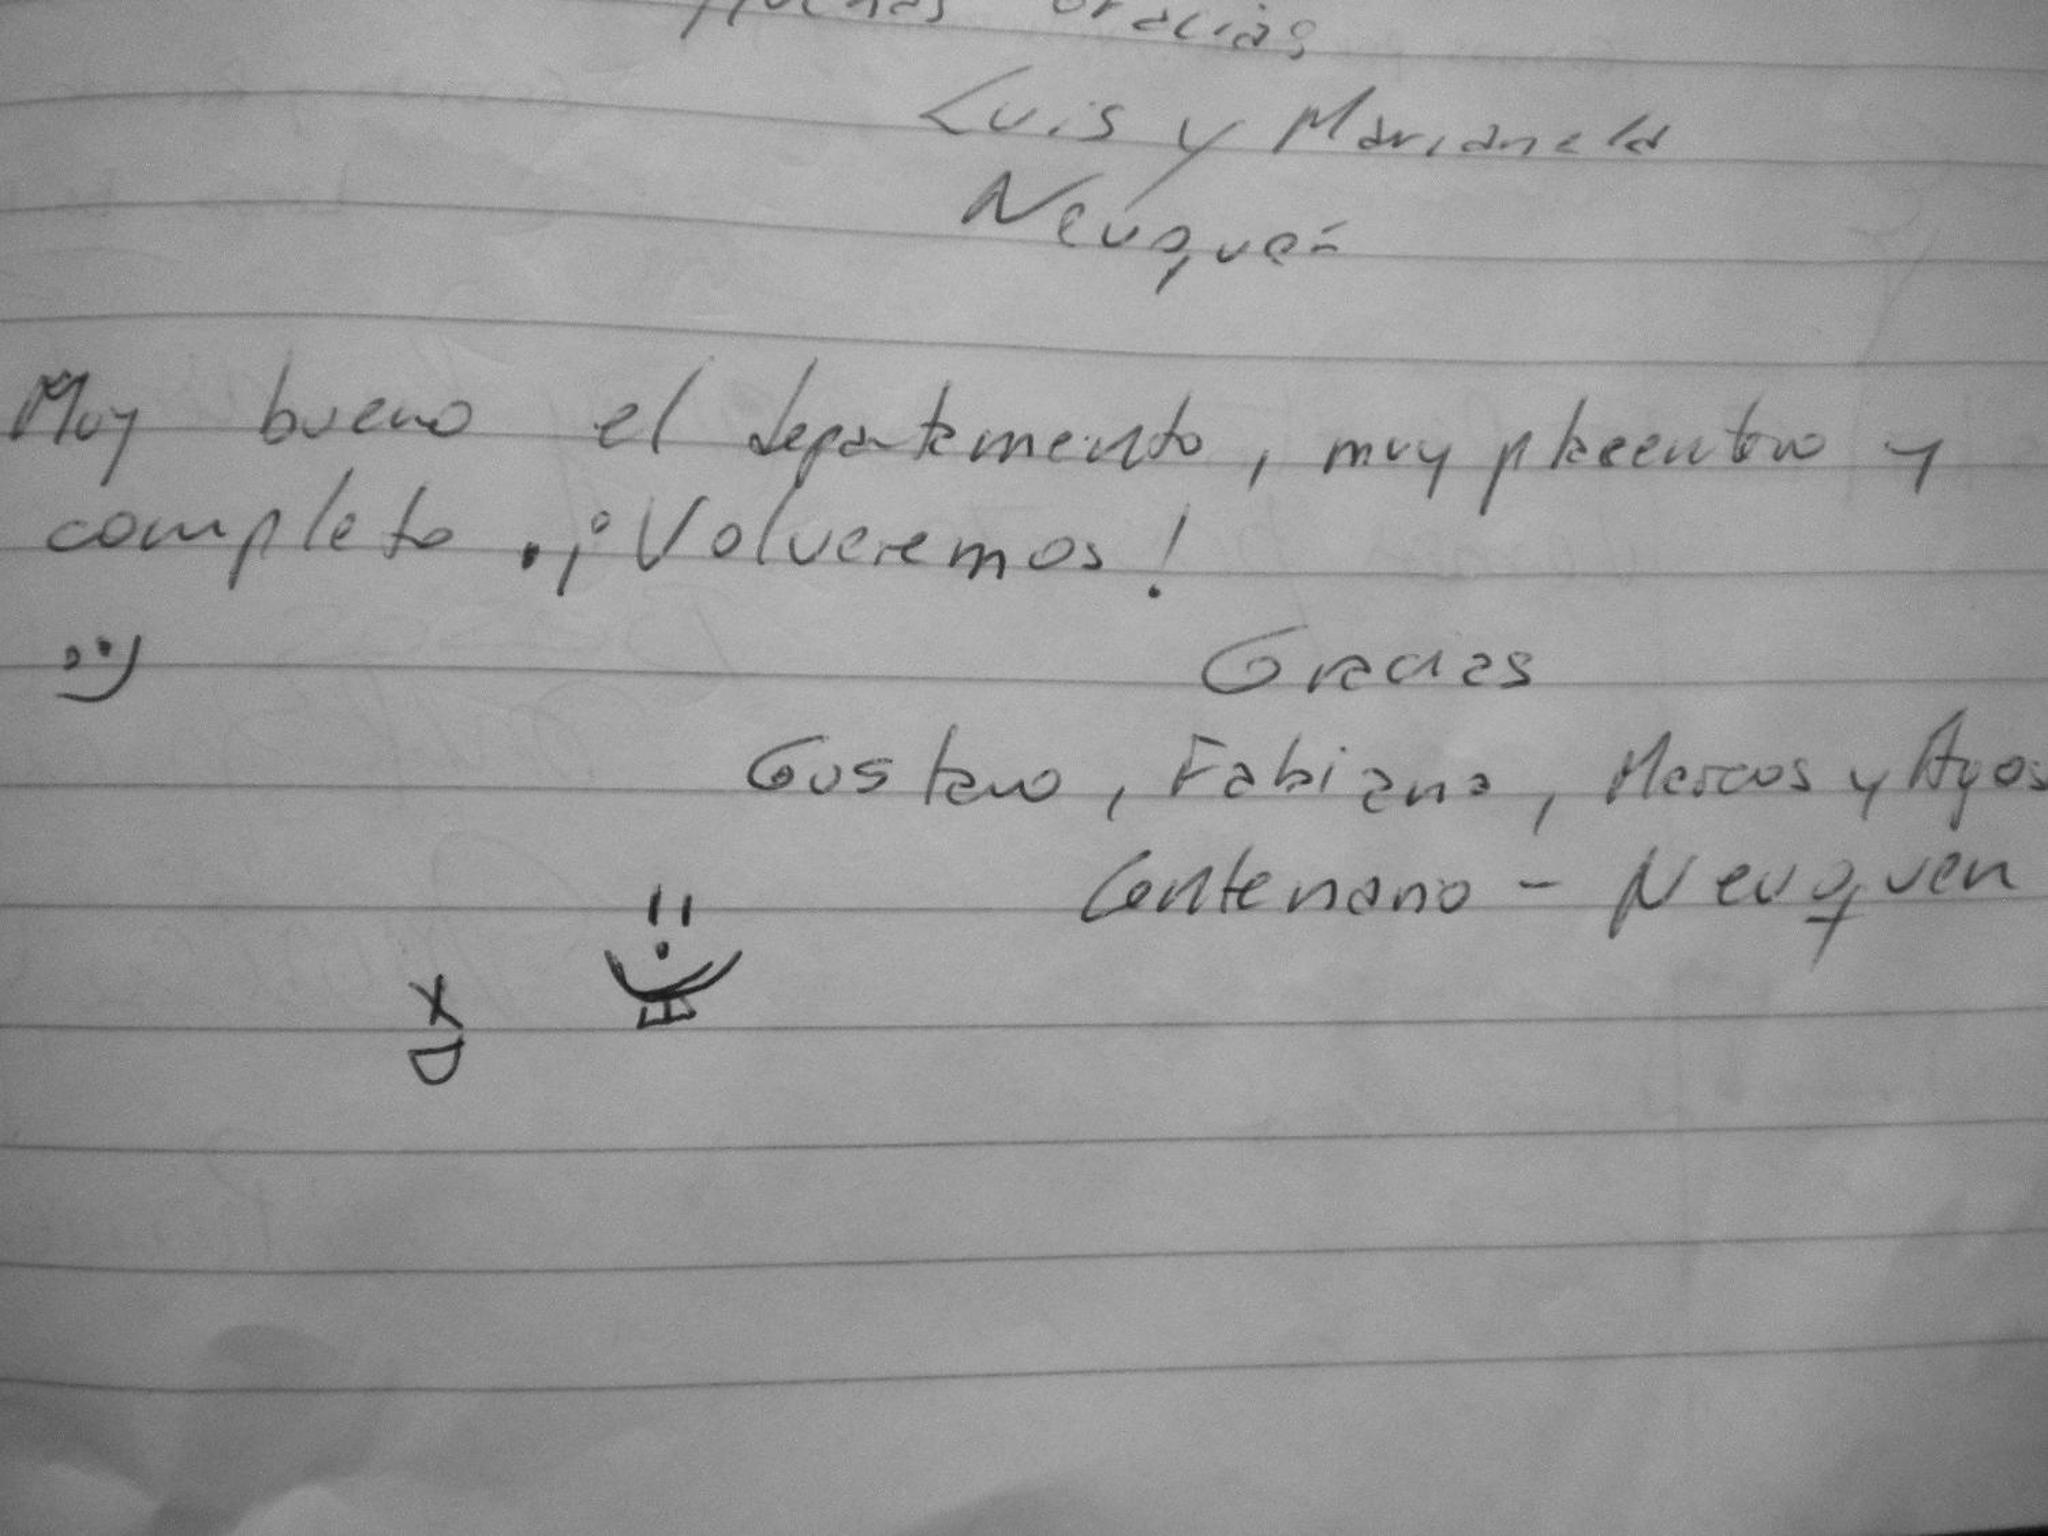 Muchas Gracias
Luis y Marianela
Neuquén
Muy bueno el departamento, muy placentero y
completo. ¡Volveremos!
:)
Gracias
Gustavo, Fabiana, Marcos y Ayos
Centenario - Neuquen
XD